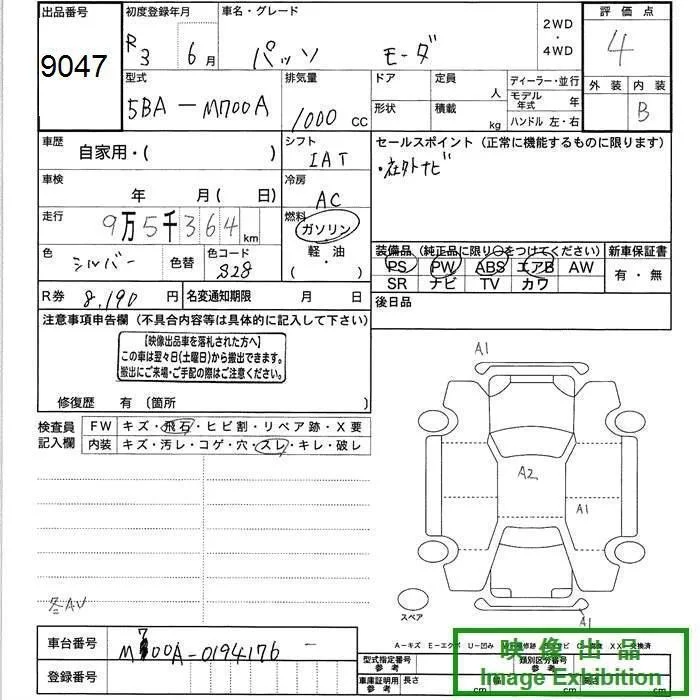 出品番号 初度登録年月 車名・グレード 2WD ・ 4WD 評価点
9047 R3 6月 パッソ モーダ 4
型式 排気量 ドア 定員 人 ディーラー・並行 外装 内装
5BA-M700A 1000 CC 形状 積載 kg モデル年式 年 B
ハンドル 左・右
車歴 自家用・( ) シフト IAT セールスポイント(正常に機能するものに限ります)
・社外ナビ
車検 年 月( 日) 冷房 AC
走行 9万5千364km 燃料 ガソリン 軽・油 ・( )
色 シルバー 色替 色コード S28
装備品(純正品に限り○をつけてください) 新車保証書
PS PW ABS エアB AW 有・無
SR ナビ TV カワ
R券 8,190 円 名変通知期限 月 日 後日品
注意事項申告欄(不具合内容等は具体的に記入して下さい)
【映像出品車を落札された方へ】
この車は翌々日(土曜日)から搬出できます。
搬出にご来場・ご手配の際はご注意ください。
修復歴 有(箇所 )
検査員記入欄 FW キズ・飛石・ヒビ割・リペア跡・X要
内装 キズ・汚レ・コゲ・穴・スレ・キレ・破レ
A1
A2
A1
A1
スペア
A-キズ E-エクボ U-凹み XX-交換済
車台番号 M700A-0194176
登録番号
型式指定番号 参考 類別区分番号 参考
車庫証明用 参考 長さ cm 幅 cm cm
映像出品
Image Exhibition